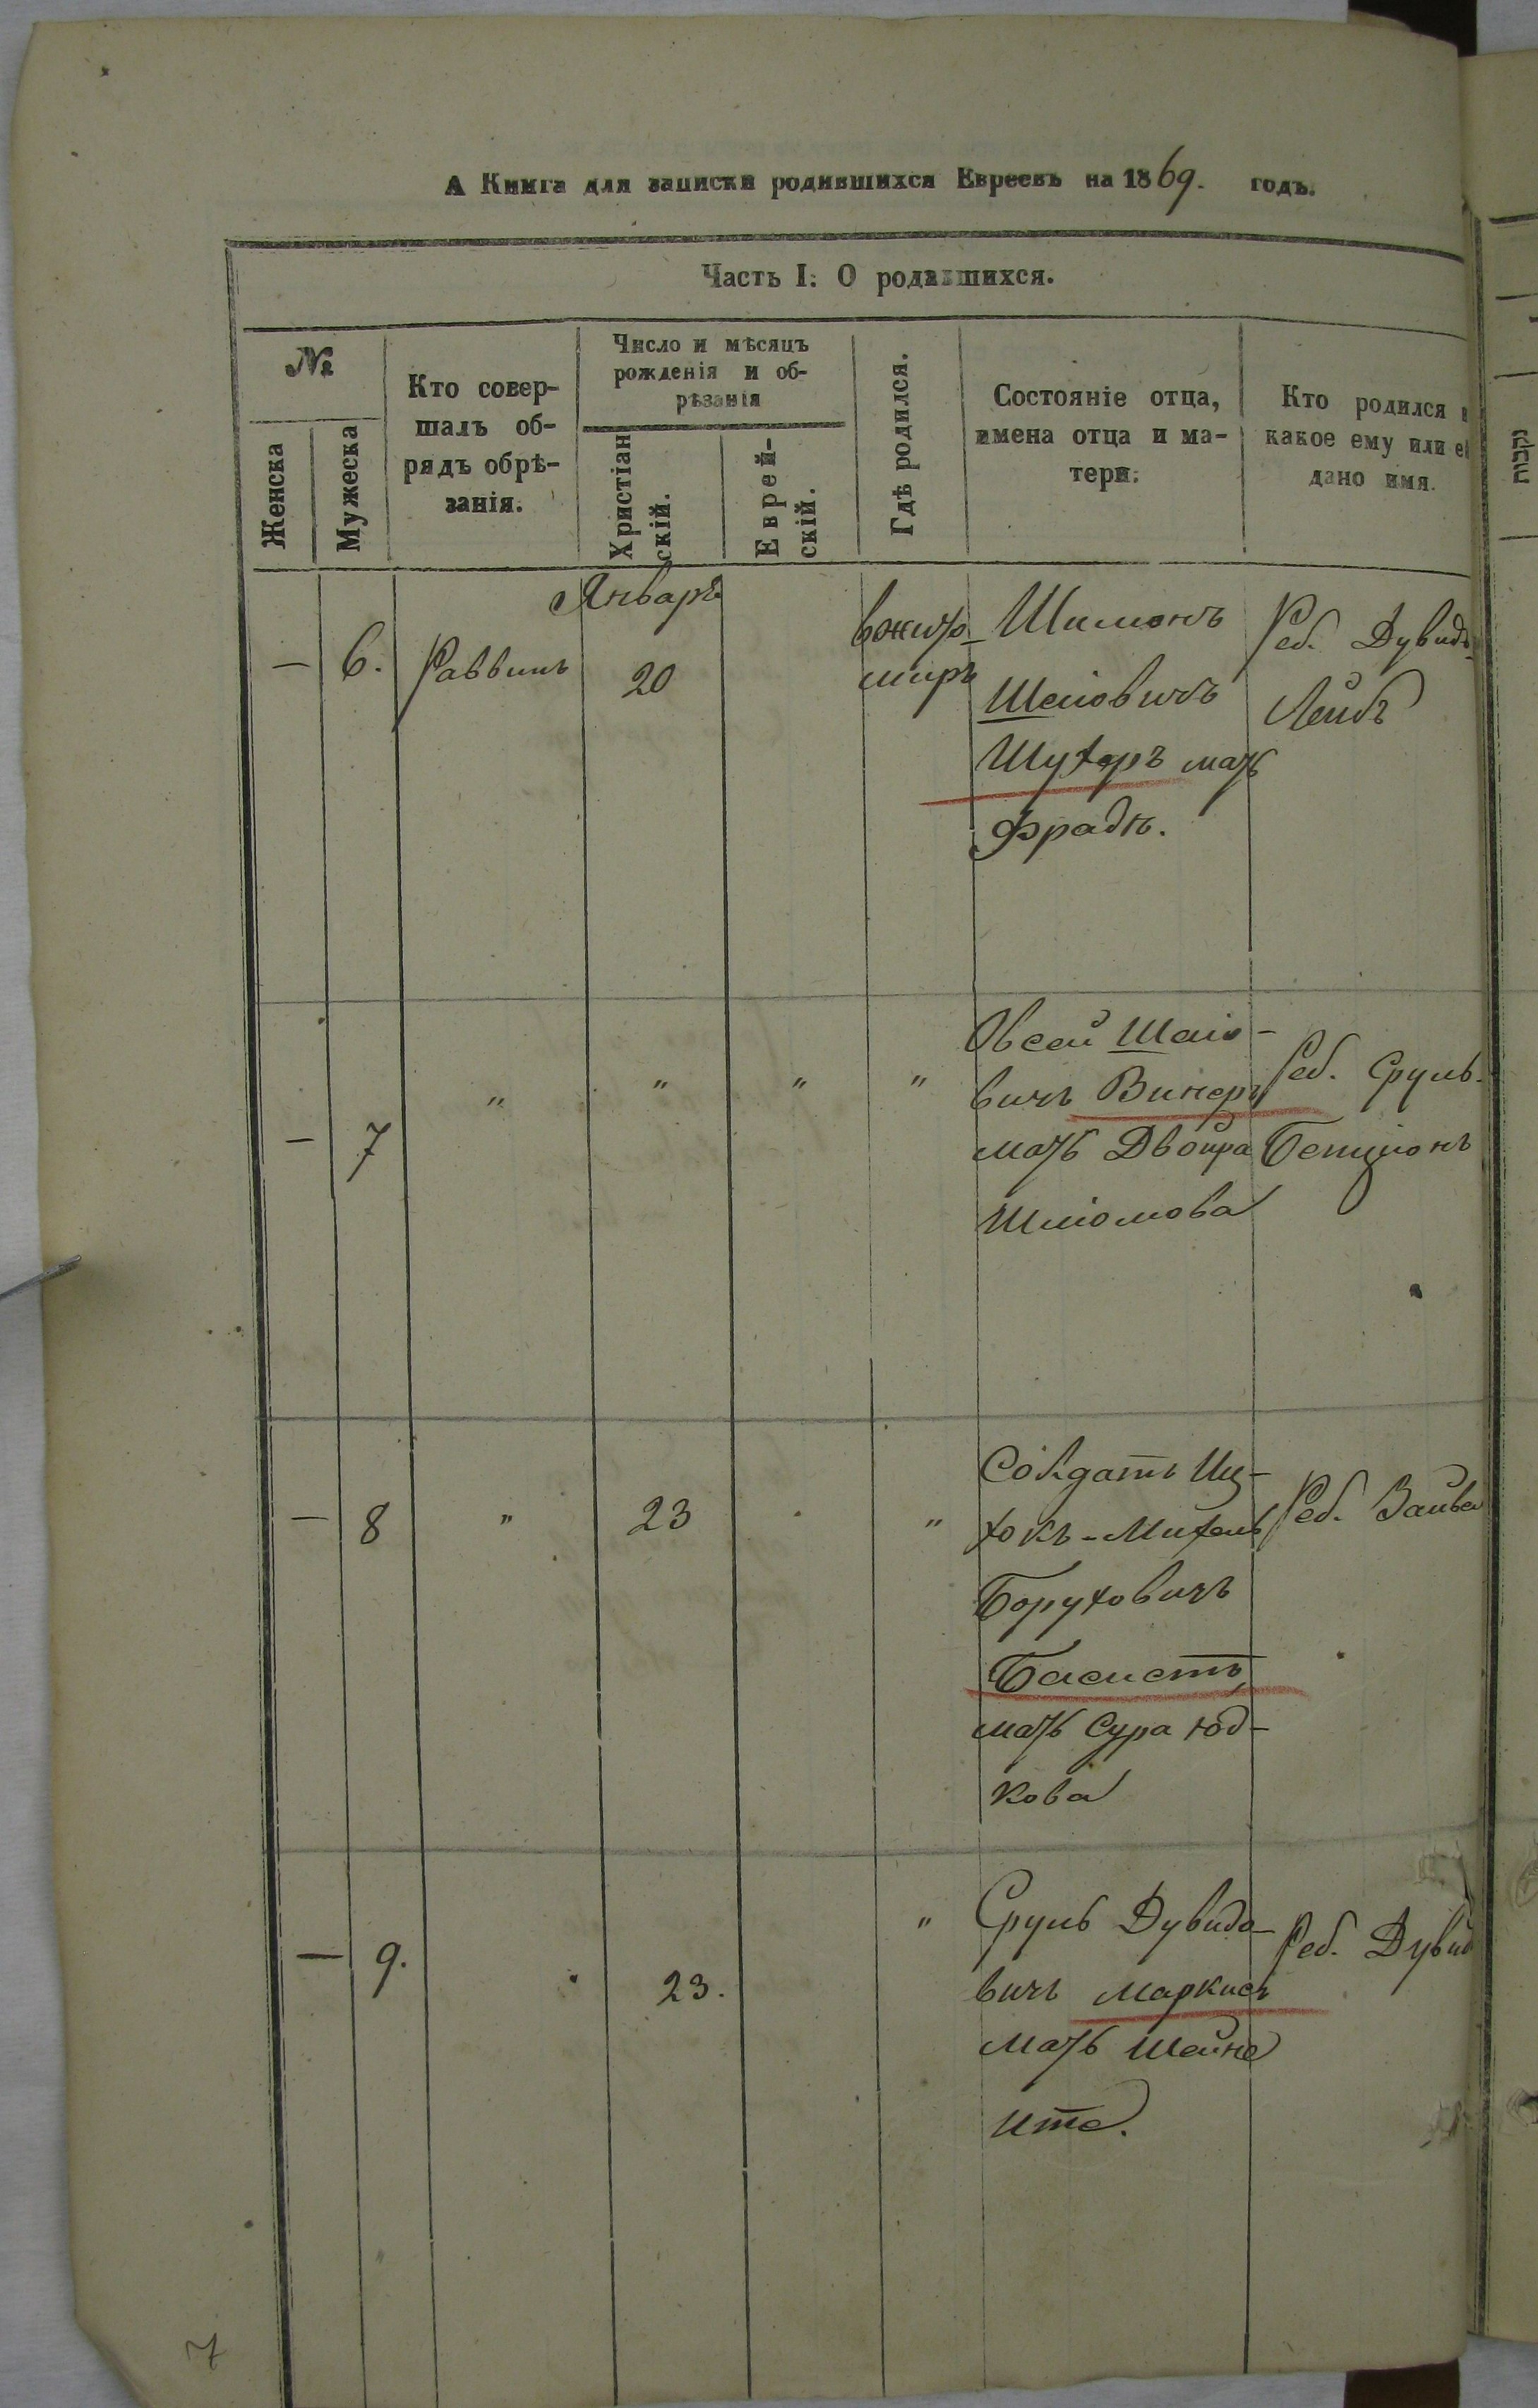 А Книга для записки родившихся Евреевъ на 1869. годъ.
Часть I: О родившихся.
№
Женска
Мужеска
Кто совер-
шалъ об-
рядъ обрѣ-
занія.
Число и мѣсяцъ
рожденія и об-
рѣзанія
Христіан
скій.
Еврей-
скій.
Гдѣ родился.
Состояніе отца,
имена отца и ма-
тери.
Кто родился и
какое ему или ей
дано имя.
נקבות
Январь
— 6. Раввинъ 20
вжито-
миръ
Шимонъ
Шаіовичъ
Шухеръ мать
Фрадѣ.
Реб. Дувидъ-
Лейбъ
— 7 " " " "
Овсей Шаіо-
вичъ Винеръ
мать Двойра
Шліомова
Реб. Сруль-
Бенціонъ
— 8 " 23 "
Солдатъ Иц-
хокъ-Михель
Боруховичъ
Басистъ,
мать Сура Юд-
кова
Реб. Зайвел
— 9. 23. "
Сруль Дувидо-
вичъ Маркисъ
мать Шейне
Ите.
Реб. Дувид
7